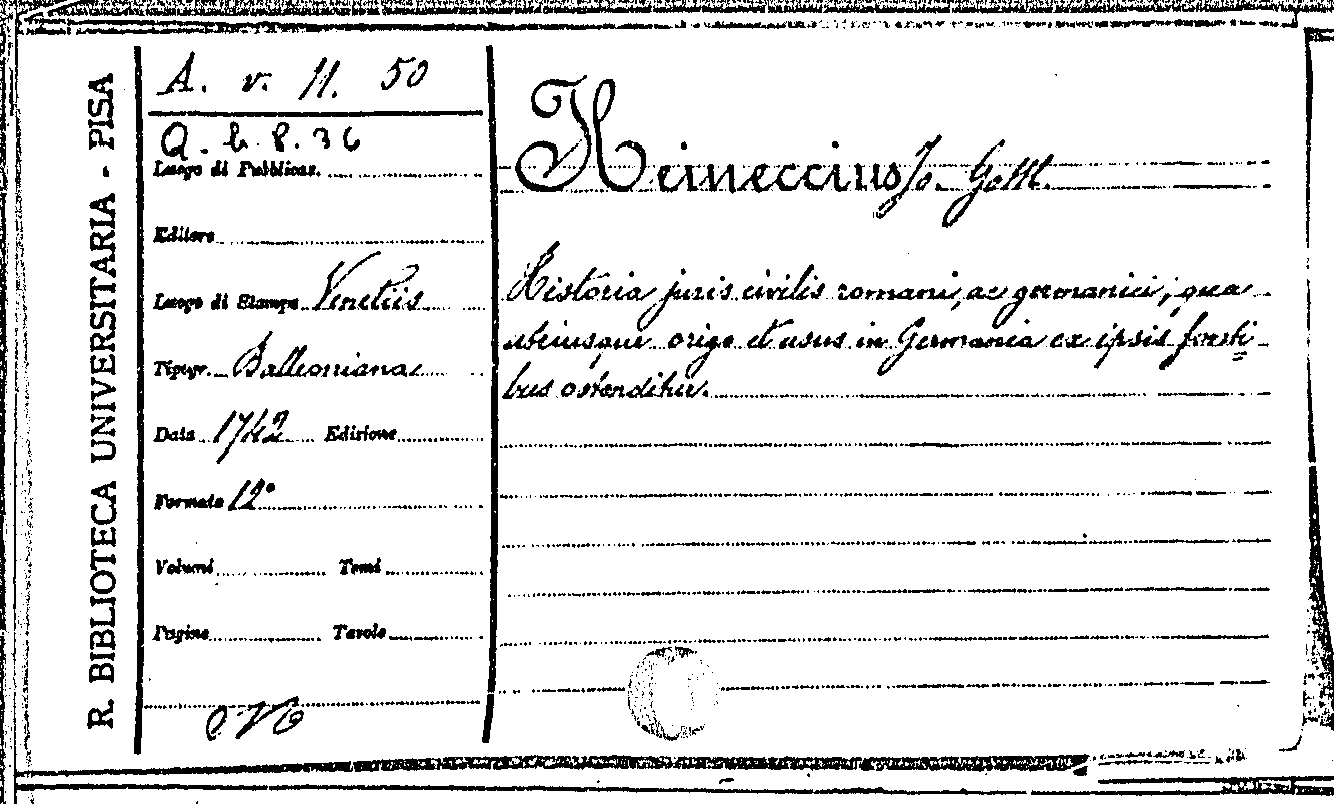 R. BIBLIOTECA UNIVERSITARIA - PISA
A. v. 11. 50
Q. b. 8. 36
Luogo di Pubblicaz.
Editore
Luogo di Stampa Venetiis
Tipogr. Balleoniana
Data 1742 Edizione
Formato 12°
Volumi Tomi
Pagine Tavole
Heineccius Jo. Gottl.
Historia juris civilis romani, ac germanici, qua
utriusque origo et usus in Germania ex ipsis fonti=
bus ostenditur.